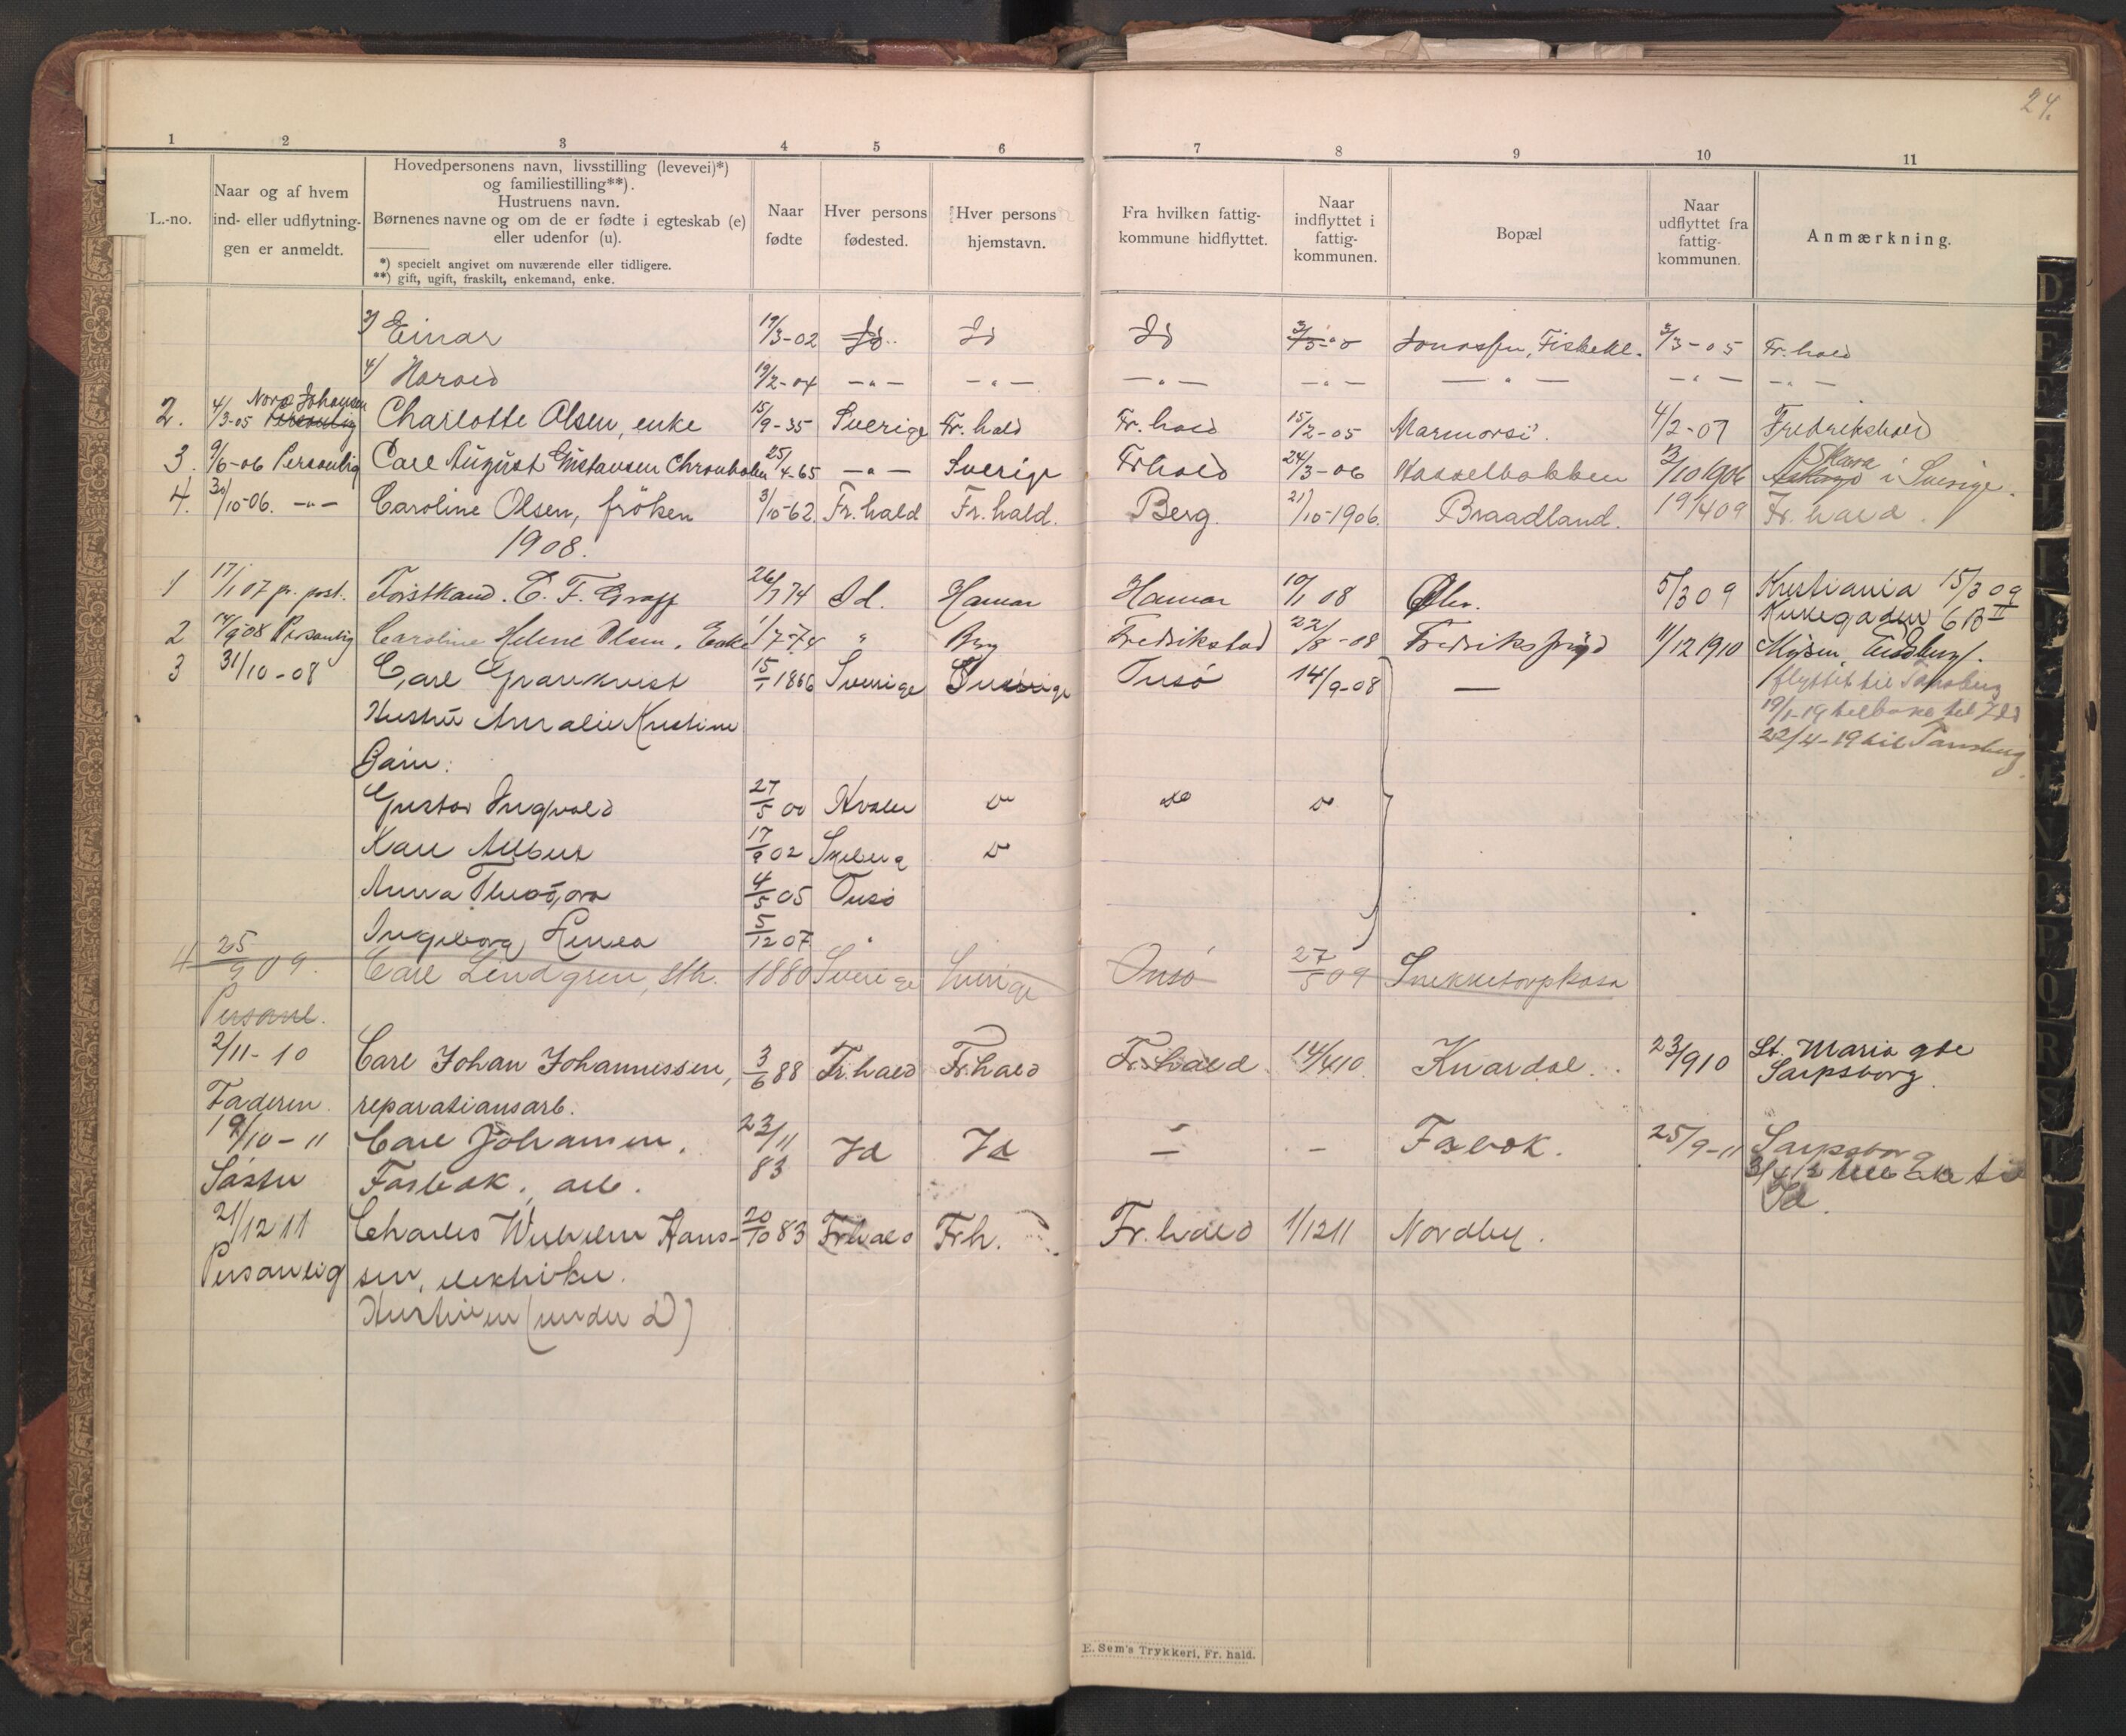 24.
1 2 3 4 5 6 7 8 9 10 11
L.-no.
Naar og af hvem
ind- eller udflytnin-
gen er anmeldt.
Hovedpersonens navn, livsstilling (levevei)*)
og familiestilling**).
Hustruens navn.
Børnenes navne og om de er fødte i egteskab (e)
eller udenfor (u).
*) specielt angivet om nuværende eller tidligere.
**) gift, ugift, fraskilt, enkemand, enke.
Naar
fødte
Hver persons
fødested.
Hver persons
hjemstavn.
Fra hvilken fattig-
kommune hidflyttet.
Naar
indflyttet i
fattig-
kommunen.
Bopæl
Naar
udflyttet fra
fattig-
kommunen.
Anmærkning.
3/ Einar 19/3-02 Id Id Id Fr. hald 3/3-05
4/ Harald 19/2-04 -"- -"- -"- -"- -"- -"- -"-
Nora Johansen
2. 4/3-05 Personlig Charlotte Olsen, enke 15/9-35 Sverige Fr. hald Fr. hald 15/2-05 4/2-07 Fredrikshald
Skara
3. 9/6-06 Personlig Carl August Gustavsen 25/4-65 -"- Sverige Frhald 24/3-06 Hasselbakken 13/10 1906 i Sverige.
4. 30/10-06. -"- Caroline Olsen, fröken 3/10-62 Fr. hald Fr. hald. Berg. 21/10-1906. Braadland. 19/4 09 Fr. hald.
1908.
1 17/1 07 pr. post. Forstkand. C. F. Graff 26/7 74 Id. Hamar Hamar 10/1 08 5/3 09 Kristiania 15/3 09
6 B II
2 14/9-08 Personlig Caroline Helene Olsen. Enke 1/7-74 " Berg Fredrikstad 22/8-08 11/12 1910 Mysen, Eidsberg.
3 31/10-08 Carl Grankvist 15/1 1866 Sverige Sverige Onsö 14/9-08 — flyttet til Tønsberg
19/1-19 tilbake til Idd
Hustru Amalie Kristine
22/4-19 til Tønsberg
Barn:
Gustav Ingvald 27/5 00 Hvaler
Karl Albert 17/9 02 Skeberg
Anna Theodora 4/5 05 Onsö
Ingeborg Linea 5/12 07 "
4 25/9 09. Carl Lindgren, sth. 1880 Sverige Sverige Onsö 27/5 09
Personl.
2/11-10 Carl Johan Johannessen, 3/6 88 Fr. hald Fr. hald Fr. hald. 14/4 10 Knardal. 23/9 10 St. Maria gde
Sarpsborg.
Faderen. reparationsarb.
19/10-11 Carl Johansen, 23/11 83 Id Id — - Fasbok. 25/9-11 Sarpsborg
Søster Fasbok, arb. 3/4 12 tilbake til
Id.
21/12 11 Charles Wilhelm Hans- 20/10 83 Frhald Frh. Fr. hald 1/12 11 Nordby.
Personlig sen, elektriker.
Hustruen (under D)
E. Sem's Trykkeri, Fr. hald.